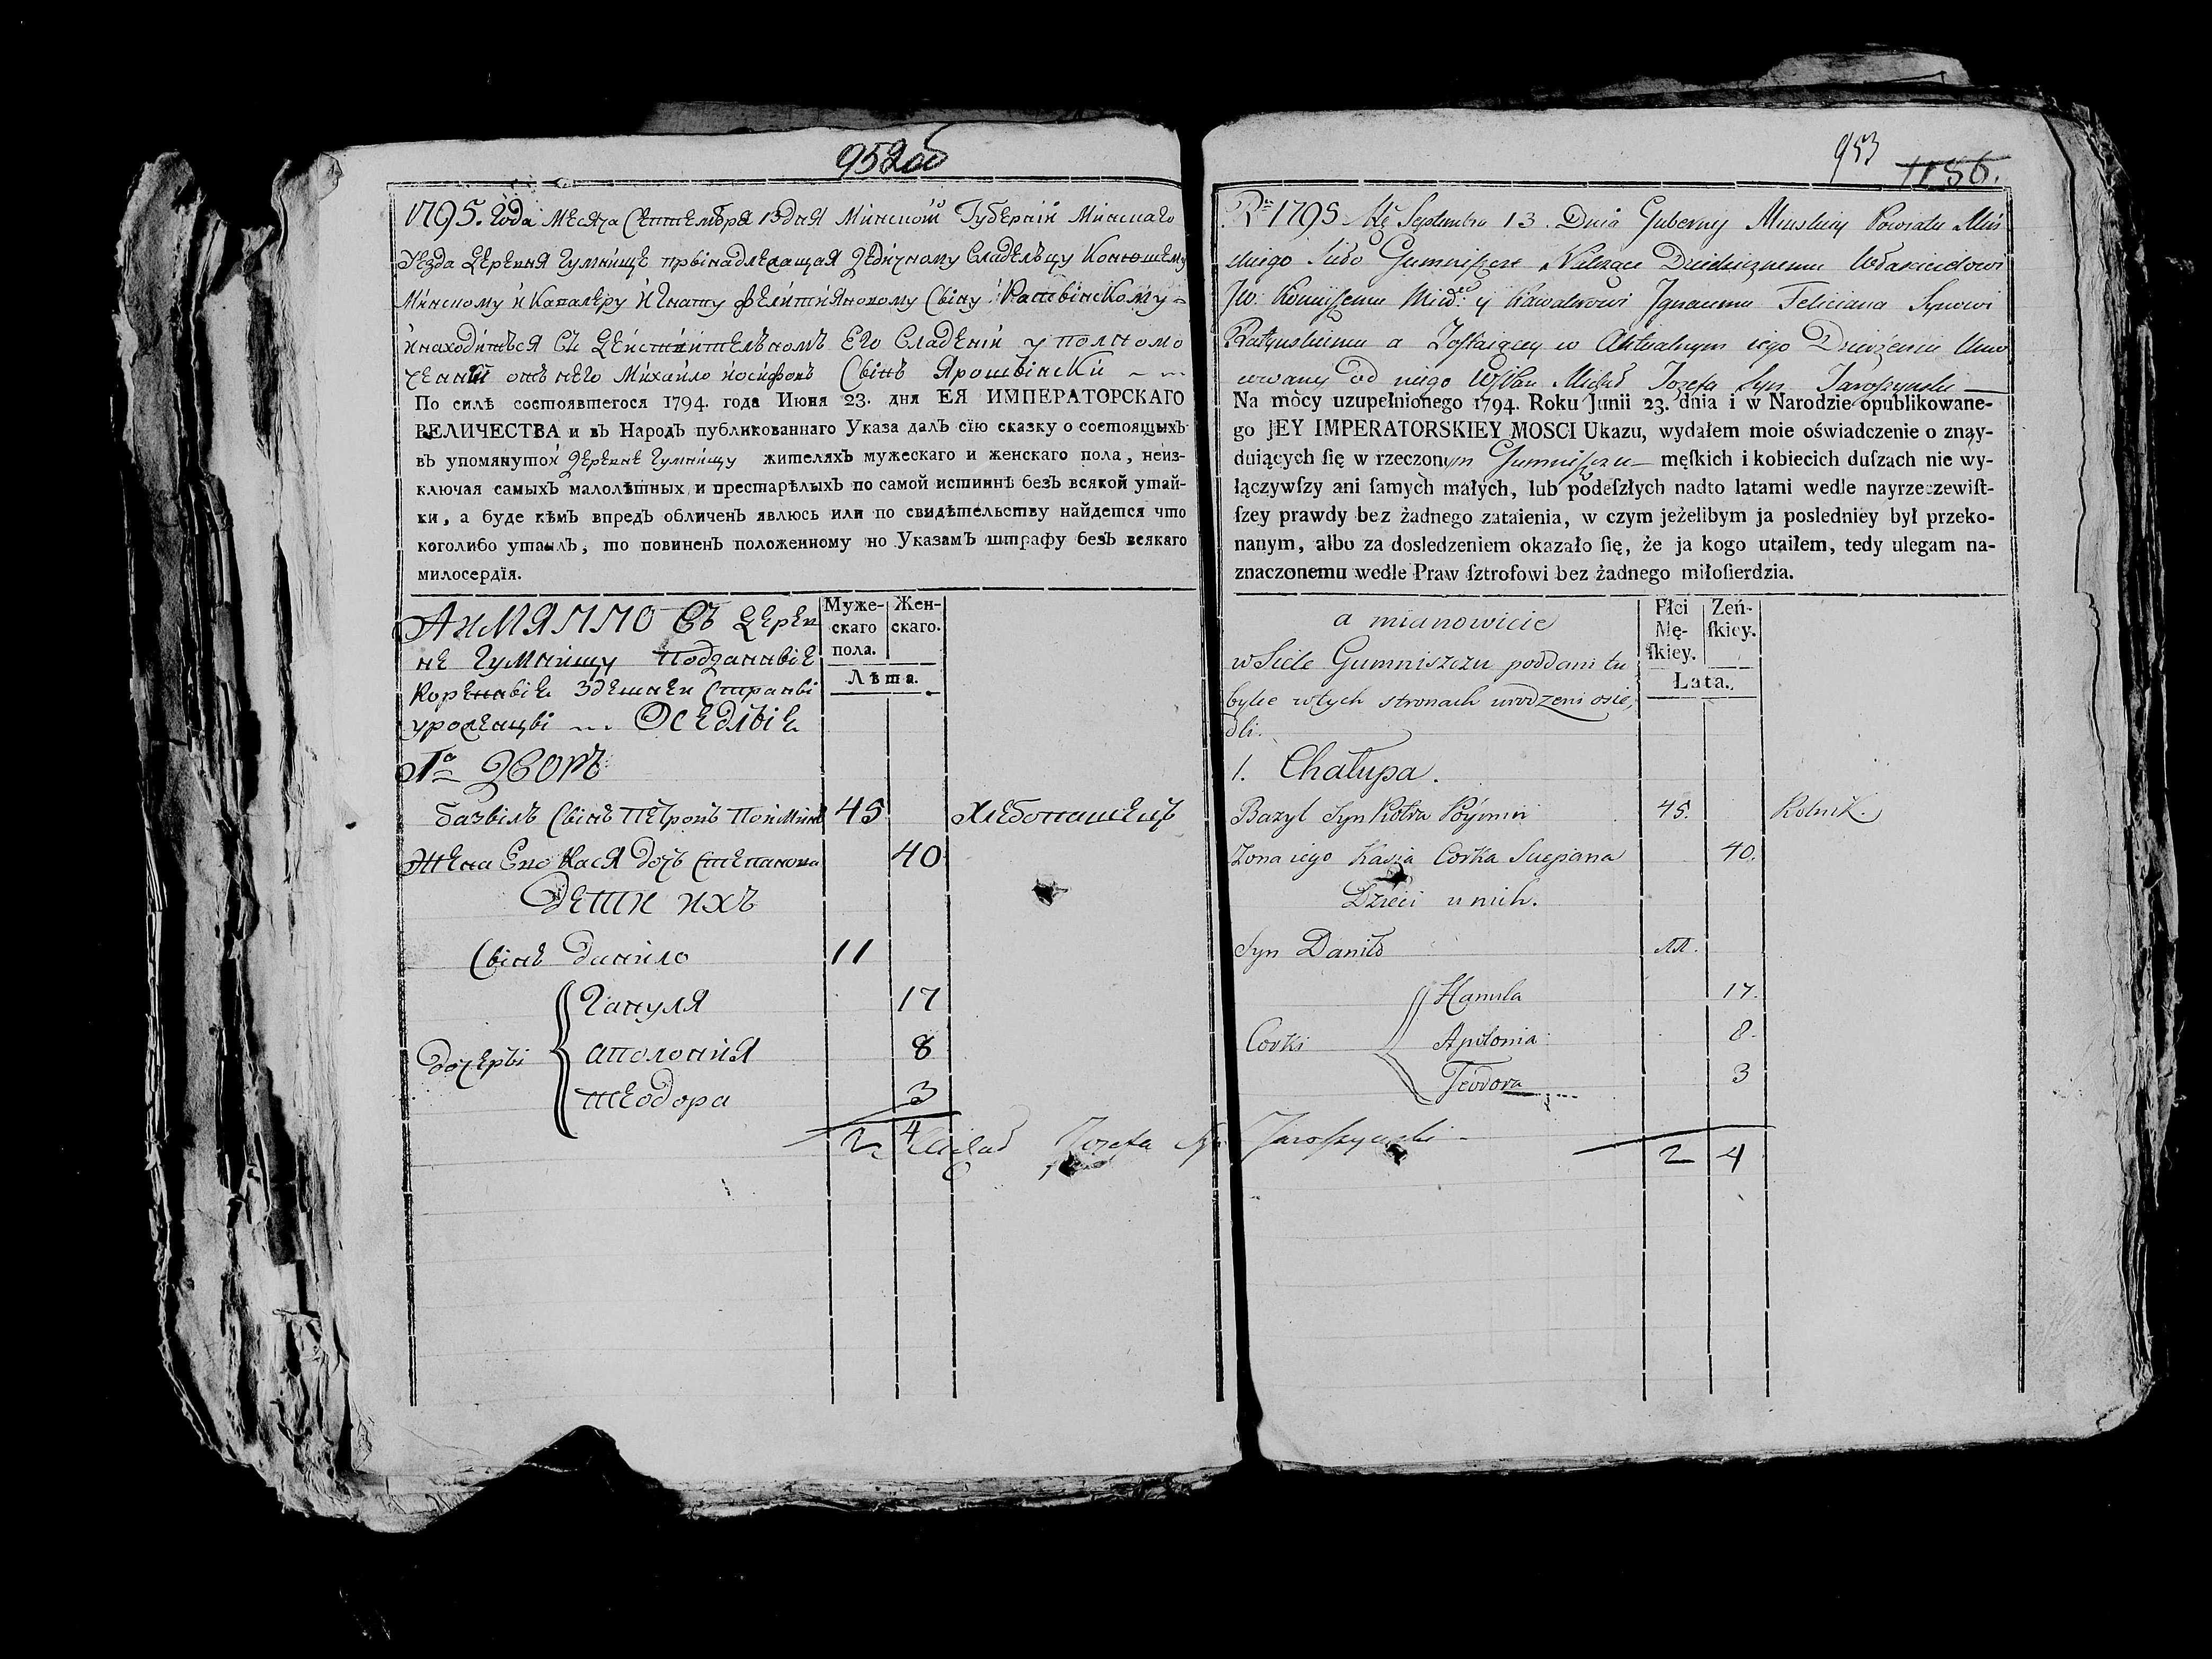 952об
1795. года месяца Септембра 13 дня Минской Губернии Минскаго
уезда деревня Гумнище прынадлежащая дедичному владельцу Конюшему
Минскому и Кавалеру Игнату Фелитияновому Сыну Ратынскому
и находиться въ действительномъ его владении уполномо
ченный отъ него Михайло Иосифовъ Сынъ Ярошынски
По силѣ состоявшегося 1794. года Июня 23. дня ЕЯ ИМПЕРАТОРСКАГО
ВЕЛИЧЕСТВА и въ Народъ публикованнаго Указа далъ сїю сказку о состоящыхъ
въ упомянутой деревне Гумнищу жителяхъ мужескаго и женскаго пола, неиз-
ключая самыхъ малолѣтных и престарѣлыхъ по самой истиннѣ безъ всякой утай-
ки, а буде кѣмъ впредъ обличенъ явлюсь или по свидѣтельству найдется что
коголибо утаилъ, то повиненъ положенному по Указамъ штрафу безъ всякаго
милосердїя.
Муже-
скаго
пола.
Жен-
скаго.
Лѣта.
А имянно въ дерев
не Гумнищу подданные
коренные здешней страны
уроженцы Оседлые
1й дворъ
базыль Сынъ Петровъ Пойминъ 45 Хлебопашецъ
Жена Ево Кася дочь Степанова 40
дети ихъ
Сынъ данило 11
дочеры
Гануля 17
аполония 8
теодора 3
2 4
Michał Jozefa Syn Jaroszynski
953
1186.
1795 Septembra 13. Dnia Guberny Minskiey Powiatu Miń
skiego Sioło Gumniszcze Należące Dziedzicznemu Włascicielowi
JW. Koniuszemu y Kawalerowi Jgnacemu Feliciana Synowi
Ratynskiemu a Zostaiącey w Aktualnym iego Dzierżeniu Umo
cowany od niego Michał Jozefa Syn Jaroszynski
Na mòcy uzupełnionego 1794. Roku Junii 23. dnia i w Narodzie opublikowane-
go JEY IMPERATORSKIEY MOSCI Ukazu, wydałem moie oświadczenie o znay-
duiących ſię w rzeczonym Gumniszczu męſkich i kobiecich duſzach nie wy-
łączywſzy ani ſamych małych, lub podeſzłych nadto latami wedle nayrzeczewiſt-
ſzey prawdy bez żadnego zataienia, w czym jeżelibym ja posledniey był przeko-
nanym, albo za dosledzeniem okazało ſię, że ja kogo utaiłem, tedy ulegam na-
znaczonemu wedle Praw ſztrofowi bez żadnego miłoſierdzia.
Płci
Mę-
ſkiey.
Zeń-
ſkiey.
Lata.
a mianowicie
w Siele Gumniszczu poddani tu
bylie w tych stronach urodzeni osie,
dli.
1. Chałupa.
Bazyl Syn Piotra Póymin 45. Rolnik.
Zona iego Kasia Corka Sciepana 40.
Dzieci u nich.
Syn Daniło 11.
Corki
Hanula 17.
Apolonia 8.
Teodora 3
2 4